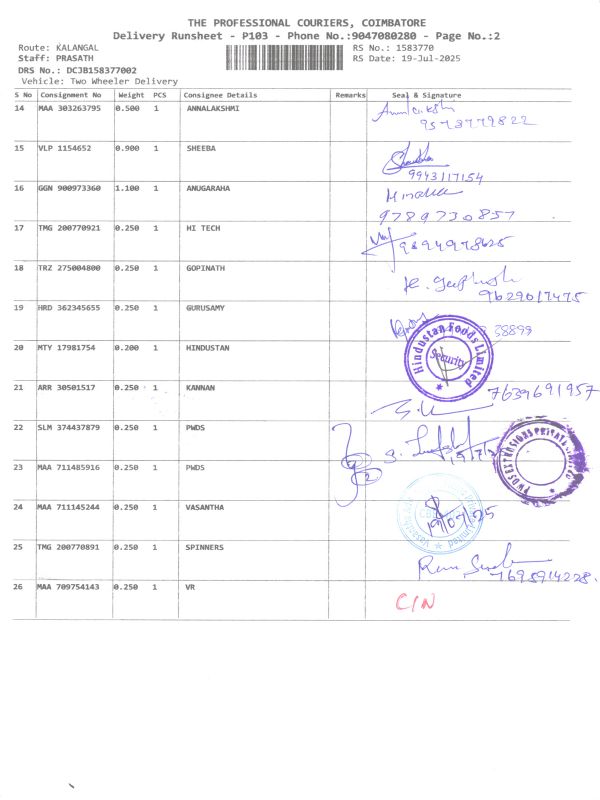 THE PROFESSIONAL COURIERS, COIMBATORE
Delivery Runsheet - P103 - Phone No.:9047080280 - Page No.:2
Route: KALANGAL RS No.: 1583770
Staff: PRASATH RS Date: 19-Jul-2025
DRS No.: DCJB158377002
Vehicle: Two Wheeler Delivery
S No Consignment No Weight PCS Consignee Details Remarks Seal & Signature
14 MAA 303263795 0.500 1 ANNALAKSHMI
9578779822
15 VLP 1154652 0.900 1 SHEEBA
9943117154
16 GGN 900973360 1.100 1 ANUGARAHA
9789730857
17 TMG 200770921 0.250 1 HI TECH
9894978625
18 TRZ 275004800 0.250 1 GOPINATH
9629017475
19 HRD 362345655 0.250 1 GURUSAMY
38899
20 MTY 17981754 0.200 1 HINDUSTAN Hindustan Foods Limited Security
21 ARR 30501517 0.250 1 KANNAN 7639691957
22 SLM 374437879 0.250 1 PWDS
23 MAA 711485916 0.250 1 PWDS
24 MAA 711145244 0.250 1 VASANTHA 19/07/25
25 TMG 200770891 0.250 1 SPINNERS
7695914228.
26 MAA 709754143 0.250 1 VR C/N